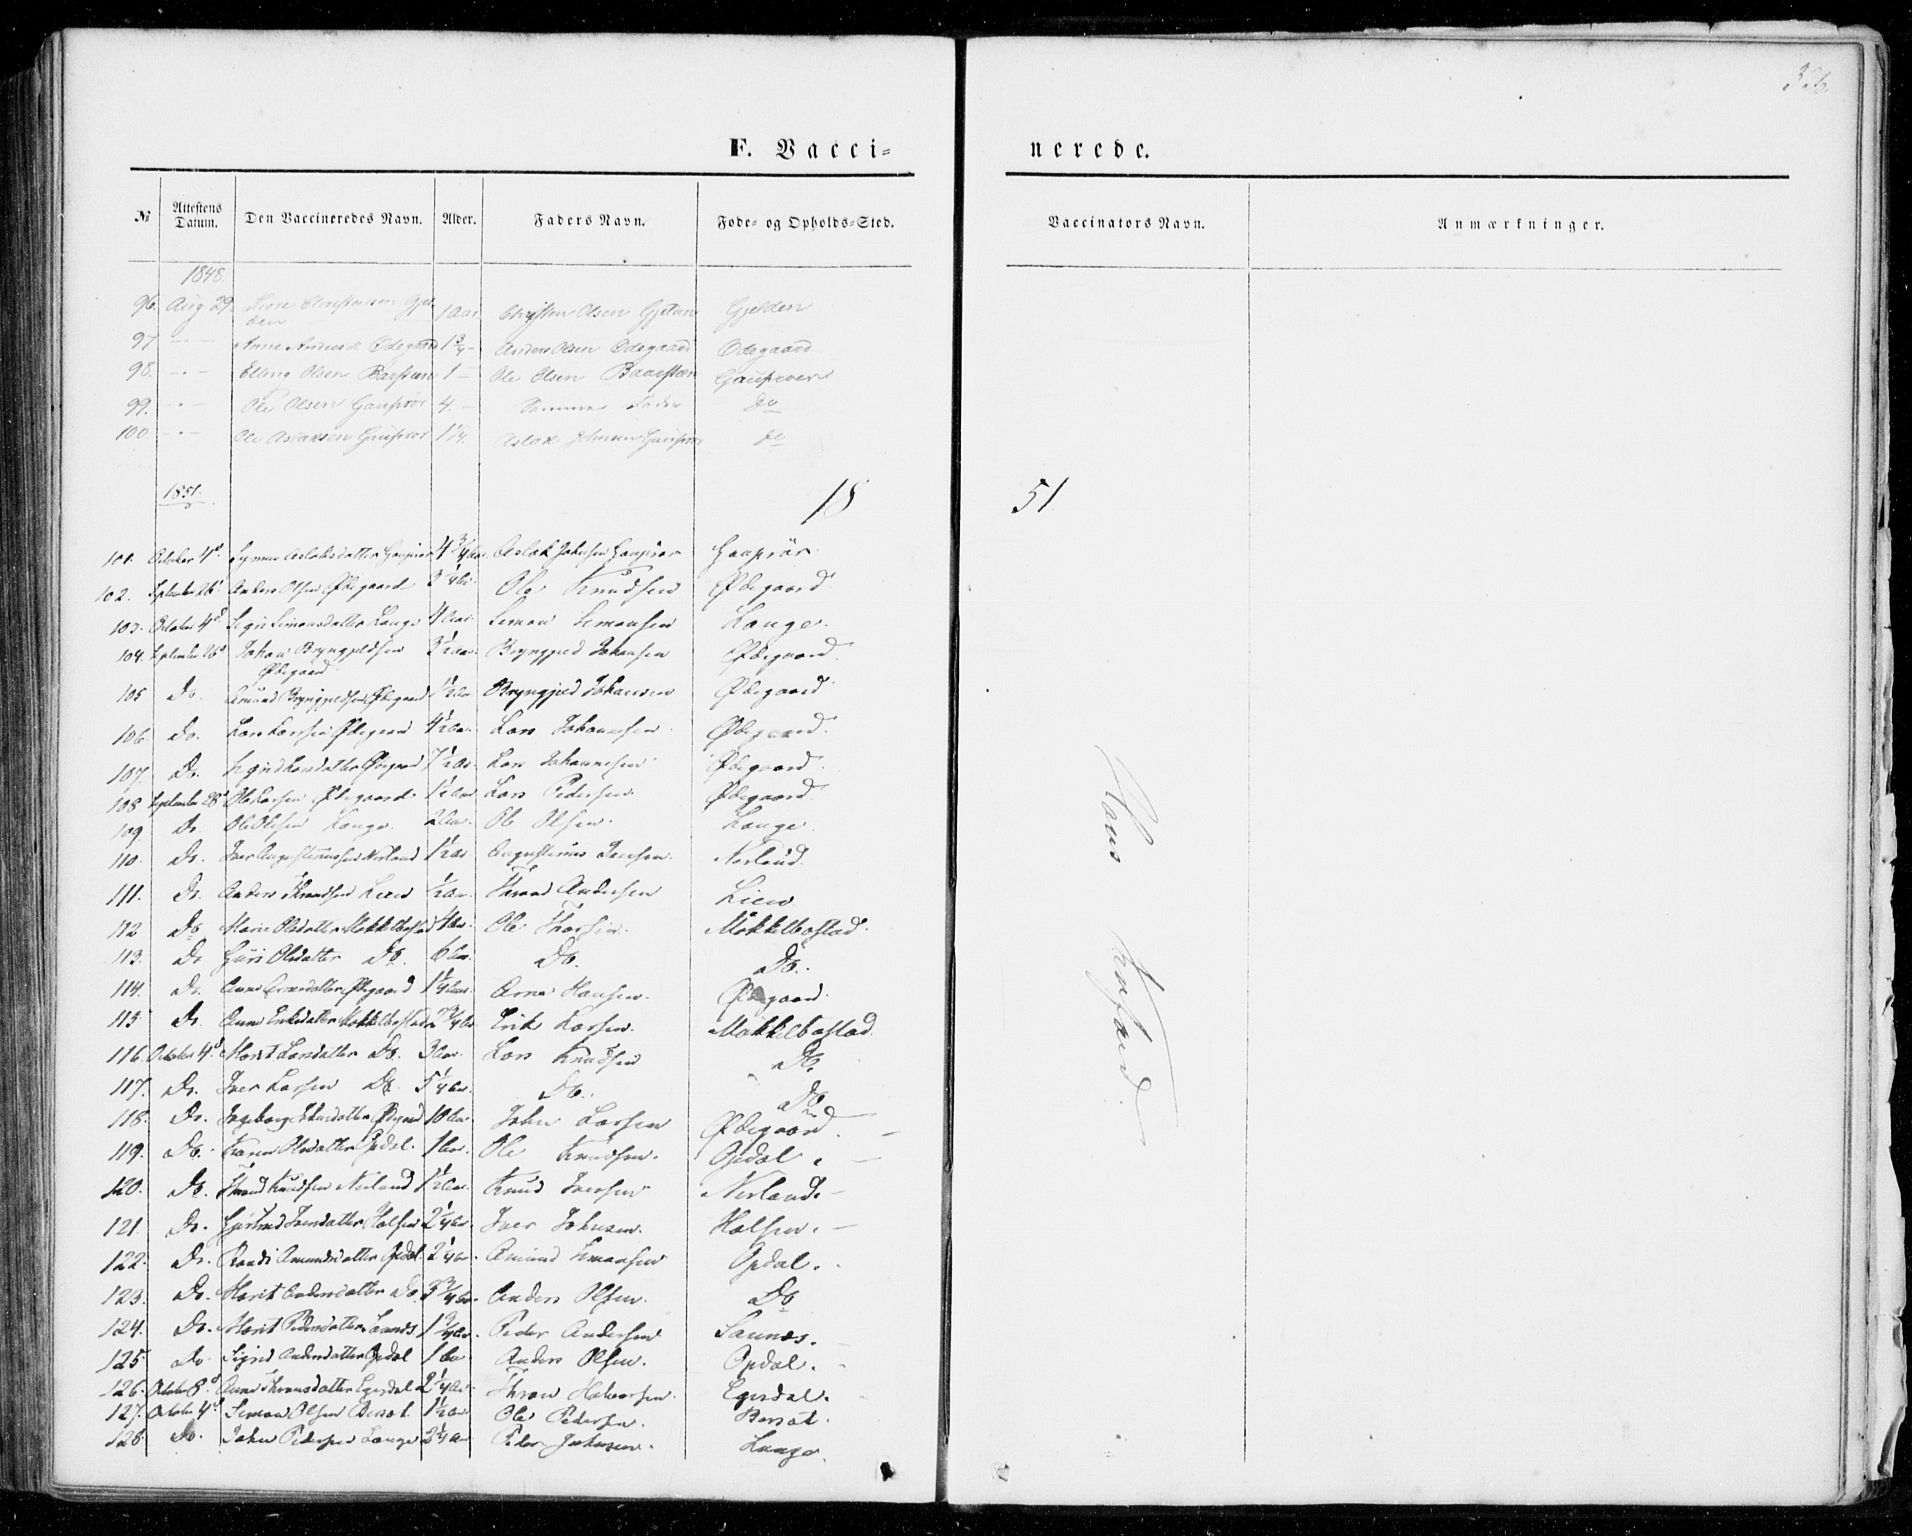 336
F. Vacci-
nerede.
№ Attestens Datum. Den Vaccineredes Navn. Alder. Faders Navn. Føde- og Opholds-Sted. Vaccinators Navn. Anmærkninger.
1848.
96. Aug 29. 1 Aar Christen Olsen Gjelden
97 - - - Anne Anders D Ødegaard 1 3/4 - Anders Olsen Ødegaard Ødegaard
98. - - - Elling Olsen Barstuen 1 - Ole Olsen Baarstuen
99. - - - Ole Olsen 4. - Samme Fader Do
100 - - - Ole Aslaksen 1 1/4. Aslak Do
1851.
18 51
101. October 4d Aslaksdatter Gauprør 4 3/4 Aar Aslak Johnsen Gauprør Gauprør
102. September 26d Anders Olsen Ødegaard 3 1/4 Aar Ole Knudsen Ødegaard
103. October 4d Sigri Simonsdatter Lange 4 Aar Simon Simonsen Lange.
104. September 26d Johan Bryngjeldsen 3 1/2 Aar. Bryngjeld Johansen Ødegaard
Ødegaard
105 Do. Amund Bryngjeldsen Ødegaard 1 1/2 Aar Bryngjeld Johansen Ødegaard
106. Do. Lars Larsen Ødegaard 4 1/2 Aar. Lars Johannesen Ødegaard.
107. Do. Sigrid Larsdatter Ødegaard 7 1/2 Aar Lars Johannesen Ødegaard.
108 September 28d Ole Larsen Ødegaard 1 1/2 Aar Lars Pedersen Ødegaard
109 Do. Ole Olsen Lange. 2 Aar. Ole Olsen. Lange.
110. Do. Iver Augustinussen Nerland 1 1/2 Aar Augustinus Jensen. Nerland.
111. Do. Anders Throndsen Lien 1/2 Aar Thrond Andersen Lien
112 Do Marie Olsdatter Mokkelbostad 4 Aar. Ole Thorsen. Mokkelbostad.
113. Do Guri Olsdatter Do. 6 Aar. Do. Do.
114. Do. Anne Arnesdatter Ødegaard 1 1/4 Aar Arne Hansen. Ødegaard.
115 Do. Anne Eriksdatter Mokkelbostad 2 3/4 Aar Erik Larsen. Mokkelbostad.
116. October 4d Marit Larsdatter Do. 3 Aar. Lars Knudsen Do.
117. Do. Iver Larsen Do. 5 1/4 Aar. Do. Do
118. Do. Ingeborg Johnsdatter Ødegaard 10 Aar. John Larsen Ødegaard. -
119. Do. Karen Olsdatter Opdal. 1 Aar. Ole Knudsen. Opdal. -
120. Do. Thrond Knudsen Nerland 1 1/2 Aar. Knud Iversen Nerland. -
121. Do. Gjertrud Iversdatter Halsen 2 1/4 Aar. Iver Johnsen. Halsen. -
122. Do. Randi Amundsdatter Opdal. 2 1/4 Aar. Amund Simonsen Opdal. -
123. Do. Marit Andersdatter Do. 3 3/4 Aar. Anders Olsen. Do
124. Do. Marit Pedersdatter Saunes 1 3/4 Aar. Peder Andersen Saunes. -
125. Do. Sigrid Andersdatter Opdal 1 Aar Anders Olsen. Opdal. -
126. October 8d Anne Thronsdatter Egesdal 2 1/4 Aar Thron Halvorsen. Egesdal.
127. October 4d Simon Olsen Bersæt. 1 1/2 Aar Ole Pedersen. Bersæt.
128. Do. John Pedersen Lange 2 1/4 Aar Peder Johnsen. Lange.
Hans